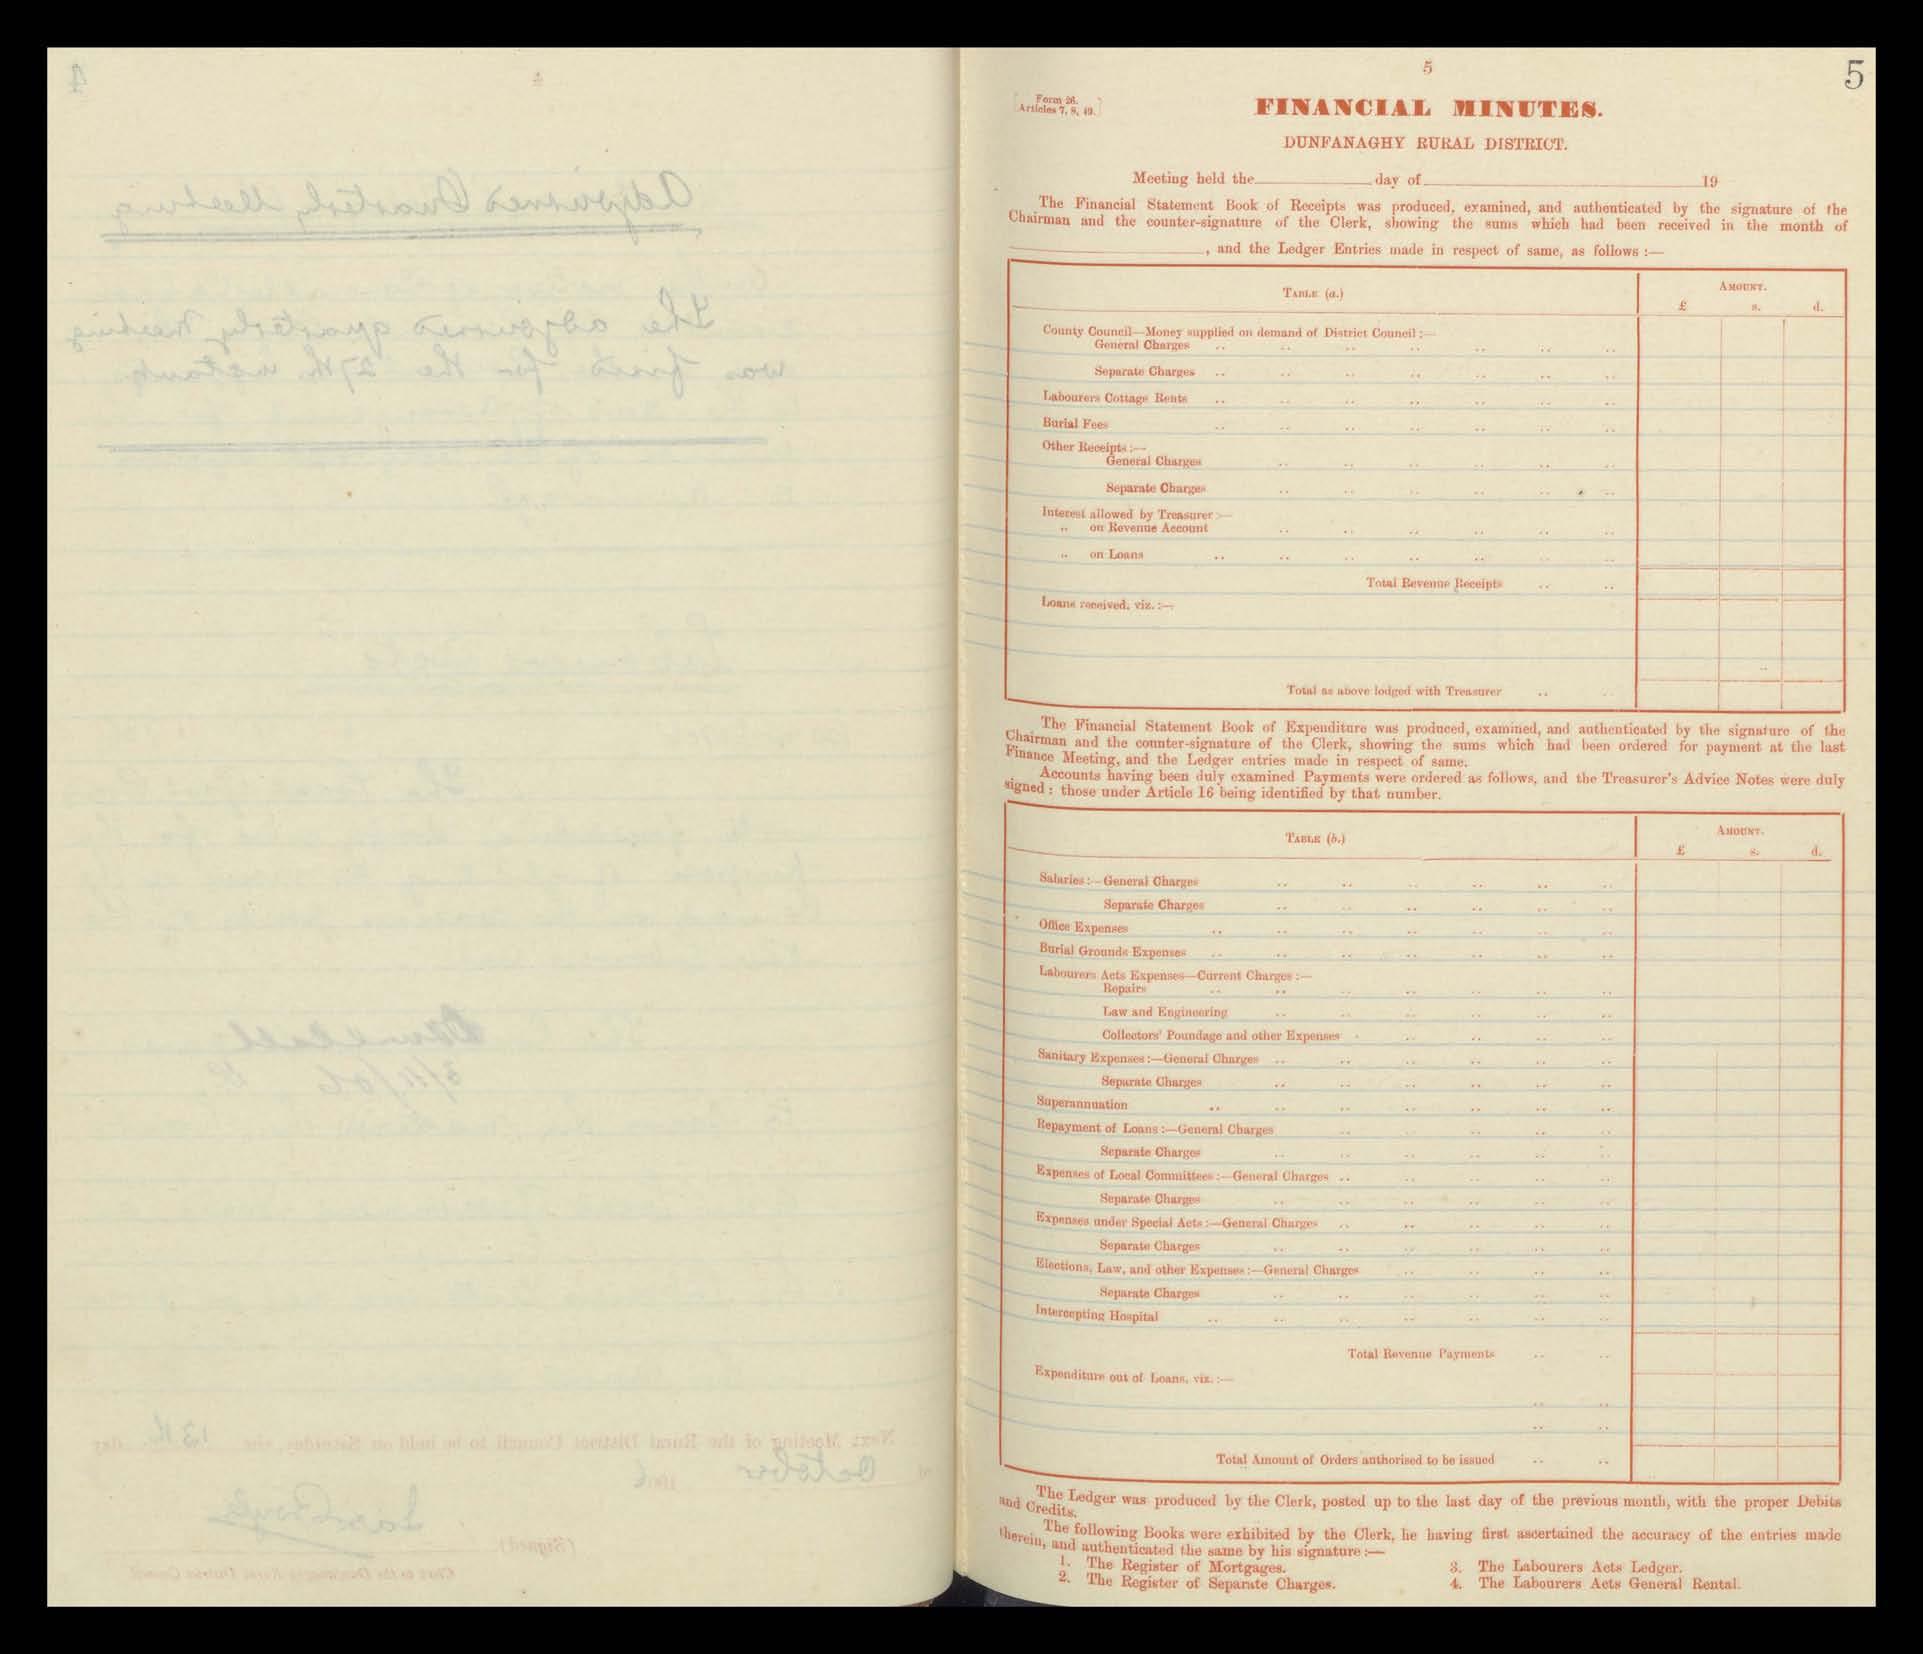 4
Adjourned Quarterly Meeting
The adjourned quarterly meeting
was fixed for the 27th instant
3/11/06
Next Meeting of the Rural District Council to be held on Saturday, the 13th day
of October 1906
(Signed)
Clerk to the Dunfanaghy Rural District Council
5
5
Form 26.
Articles 7, 8, 49.
FINANCIAL MINUTES.
DUNFANAGHY RURAL DISTRICT.
Meeting held the day of 19
The Financial Statement Book of Receipts was produced, examined, and authenticated by the signature of the
Chairman and the counter-signature of the Clerk, showing the sums which had been received in the month of
, and the Ledger Entries made in respect of same, as follows :—
TABLE (a.) AMOUNT.
£ s. d.
County Council—Money supplied on demand of District Council :—
General Charges
Separate Charges
Labourers Cottage Rents
Burial Fees
Other Receipts :—
General Charges
Separate Charges
Interest allowed by Treasurer :—
,, on Revenue Account
,, on Loans
Total Revenue Receipts
Loans received, viz. :—
Total as above lodged with Treasurer
The Financial Statement Book of Expenditure was produced, examined, and authenticated by the signature of the
Chairman and the counter-signature of the Clerk, showing the sums which had been ordered for payment at the last
Finance Meeting, and the Ledger entries made in respect of same.
Accounts having been duly examined Payments were ordered as follows, and the Treasurer's Advice Notes were duly
signed : those under Article 16 being identified by that number.
TABLE (b.) AMOUNT.
£ s. d.
Salaries :—General Charges
Separate Charges
Office Expenses
Burial Grounds Expenses
Labourers Acts Expenses—Current Charges :—
Repairs
Law and Engineering
Collectors' Poundage and other Expenses
Sanitary Expenses :—General Charges
Separate Charges
Superannuation
Repayment of Loans :—General Charges
Separate Charges
Expenses of Local Committees :—General Charges
Separate Charges
Expenses under Special Acts :—General Charges
Separate Charges
Elections, Law, and other Expenses :—General Charges
Separate Charges
Intercepting Hospital
Total Revenue Payments
Expenditure out of Loans, viz. :—
Total Amount of Orders authorised to be issued
The Ledger was produced by the Clerk, posted up to the last day of the previous month, with the proper Debits
and Credits.
The following Books were exhibited by the Clerk, he having first ascertained the accuracy of the entries made
therein, and authenticated the same by his signature :—
1. The Register of Mortgages. 3. The Labourers Acts Ledger.
2. The Register of Separate Charges. 4. The Labourers Acts General Rental.